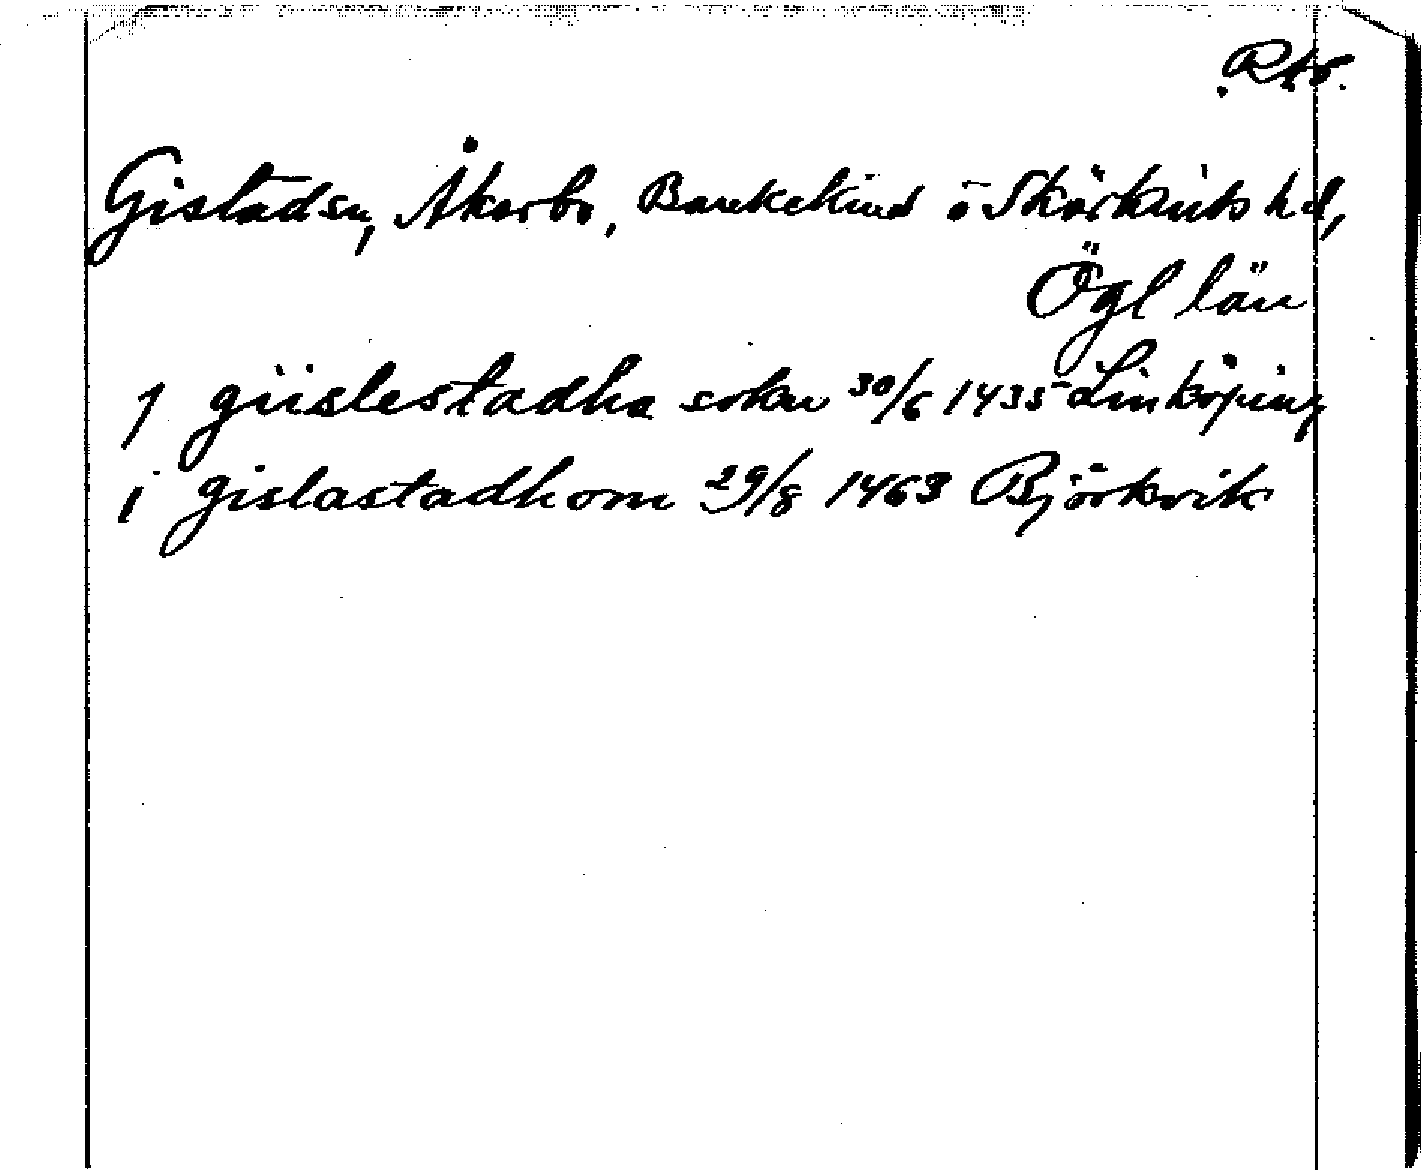 Rkv.
Gistadsn, Åkerbo, Bankekind o Skärkinds hd,
Ögl län
J giislestadha sokn 30/6 1435 Linköping
i gislastadhom 29/8 1463 Björkvik